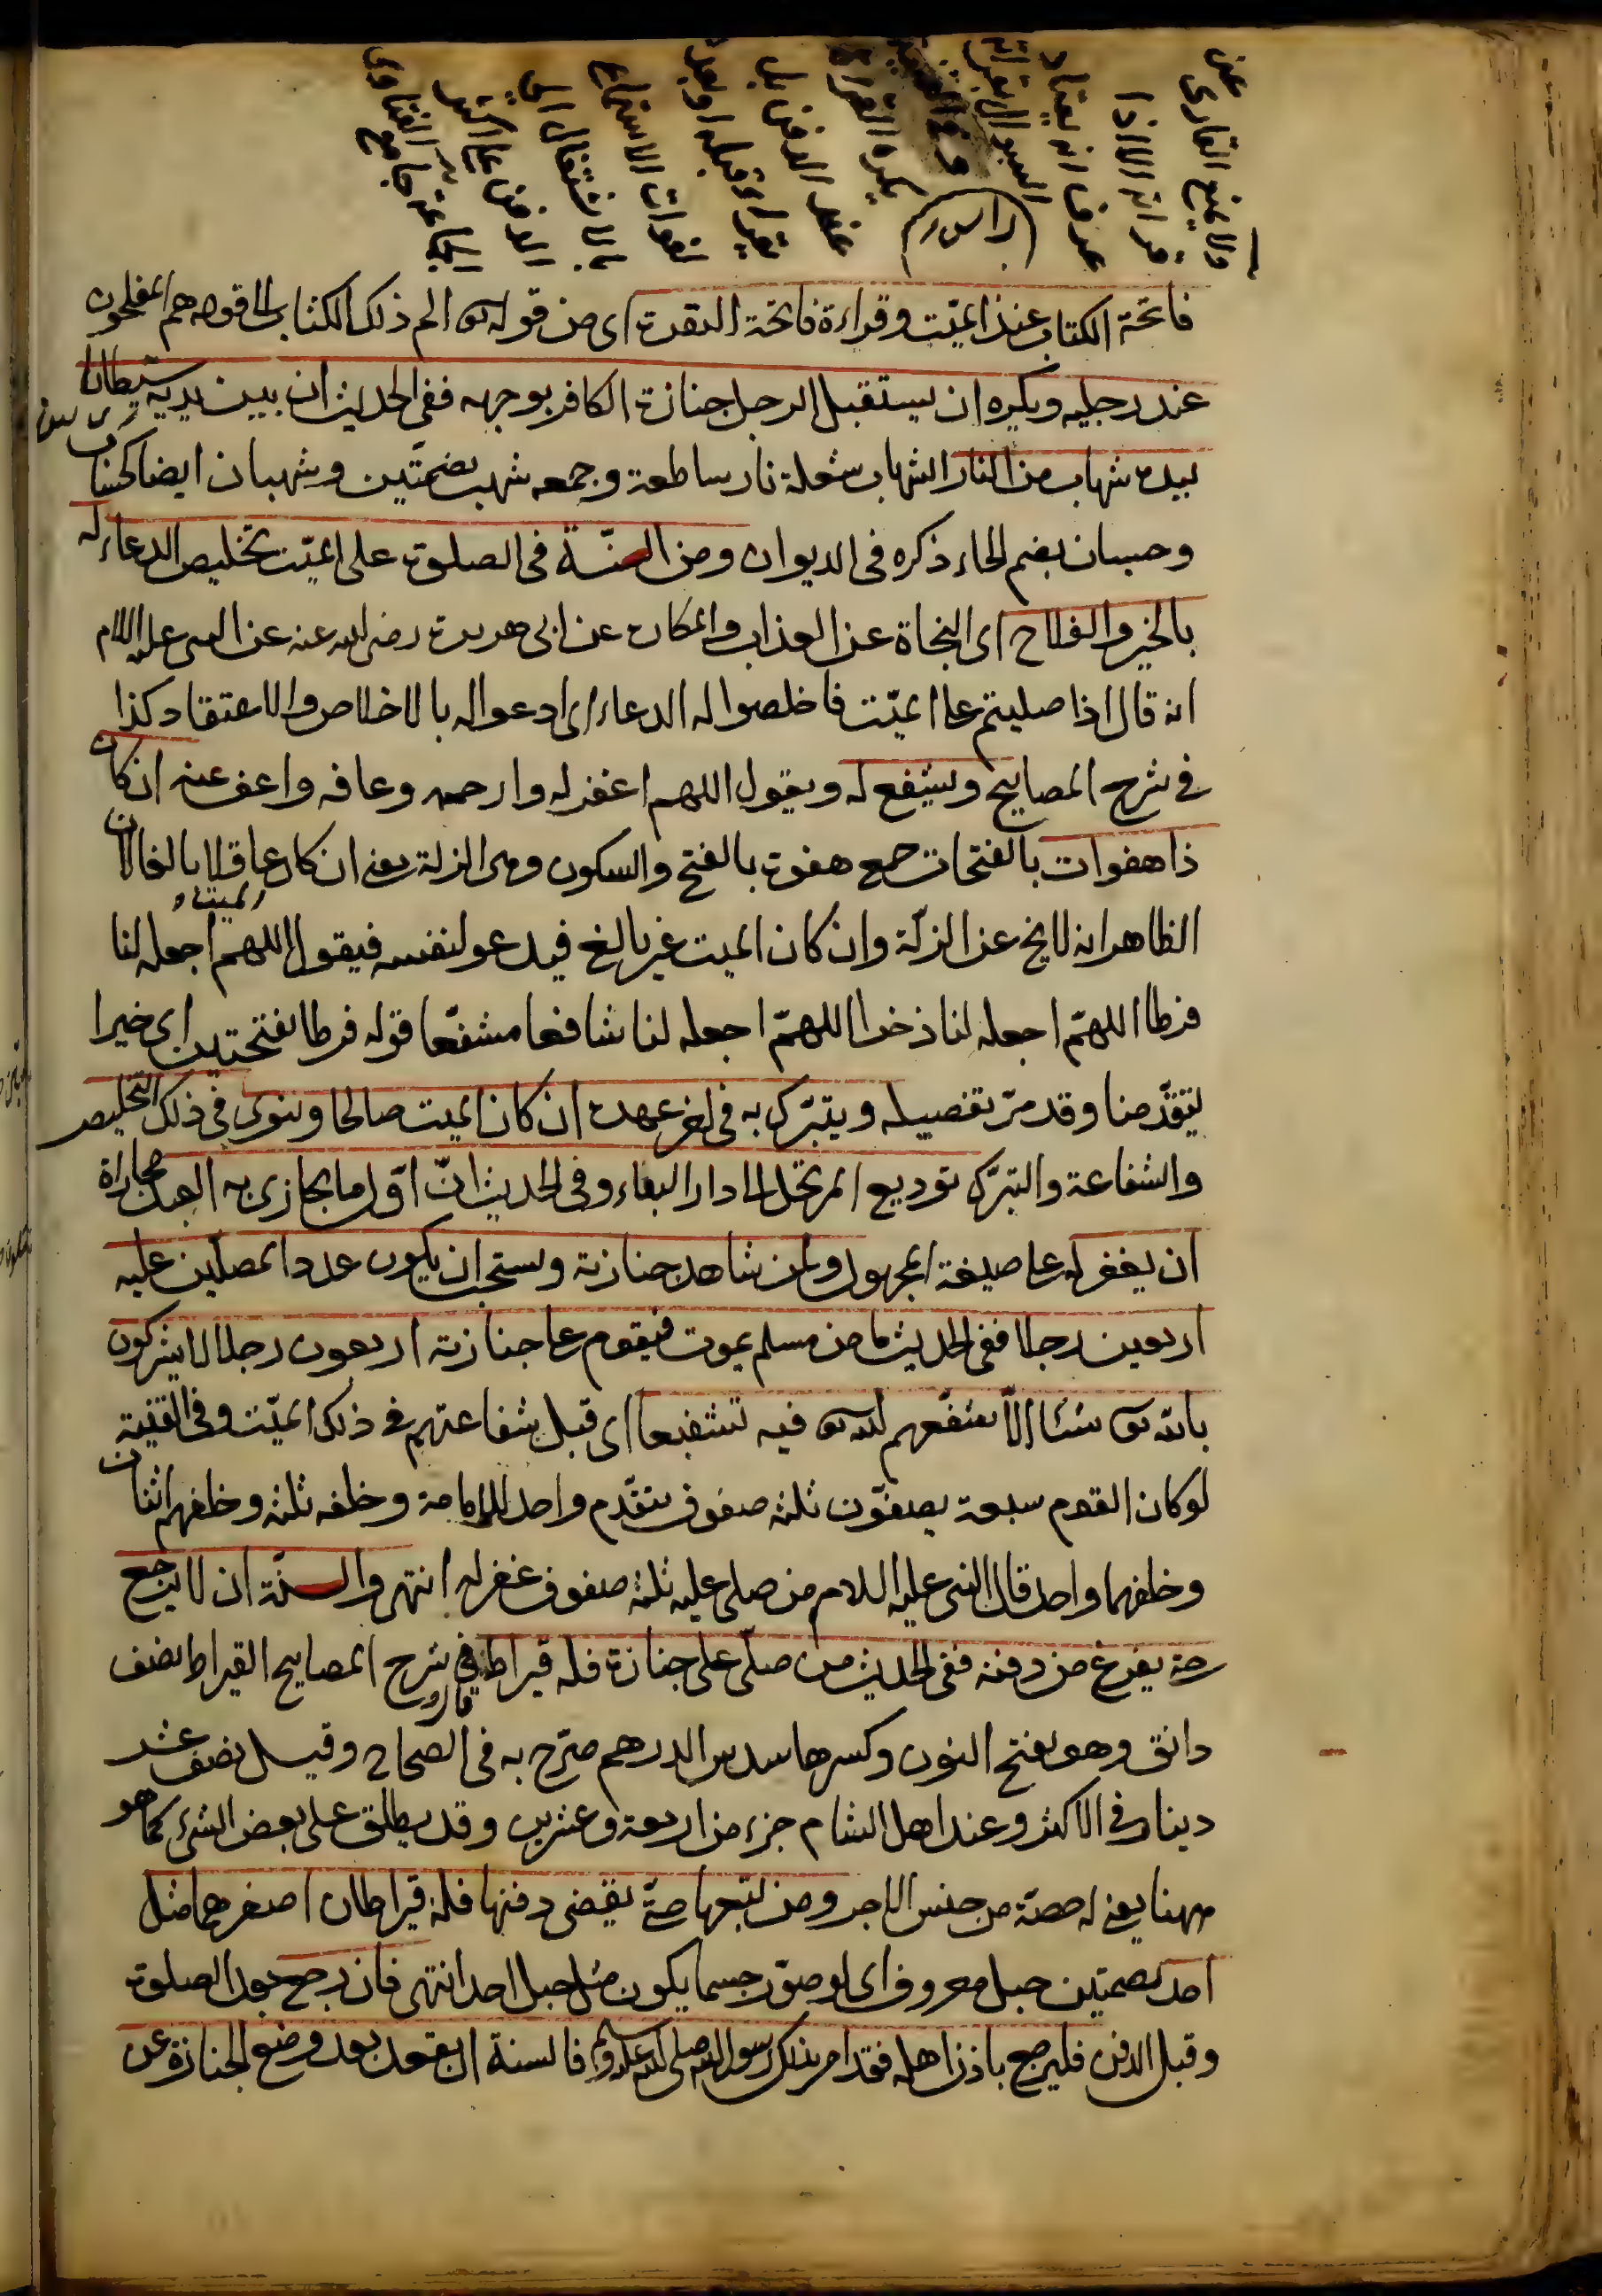 فاتحة الكتاب عند الميّت وقراءة فاتحة البقرة اى من قوله تعالى الم ذلك الكتاب الى قوله هم المفلحون
عند رجليه ويكره ان يستقبل الرجل جنازة الكافر بوجهه ففى الحديث ان بين يديه شيطانا
بيده شهاب من النار الشهاب شعلة نار ساطعة وجمعه شهب بضمّتين وشهبان ايضا كحساب
وحسبان بضم الحاء ذكره فى الديوان ومن السنّة فى الصلوة على الميّت تخليص الدعاء له
بالخير والفلاح اى النجاة عن العذاب والمكاره عن ابى هريرة رضى الله عنه عن النبى عليه السلام
انه قال اذا صليتم على الميّت فاخلصوا له الدعاء اى ادعوا له بالاخلاص والاعتقاد كذا
فى شرح المصابيح ويشفع له ويقول اللهم اغفر له وارحمه وعافه واعف عنه ان كان
ذا هفوات بالفتحات جمع هفوة بالفتح والسكون وهى الزلة يعنى ان كان عاقلا بالغا لان
الظاهر انه لا يخ عن الزلّة وان كان الميت غير بالغ فيدعو لنفسه فيقول اللهم اجعله لنا
فرطا اللهمّ اجعله لنا ذخرا اللهمّ اجعله لنا شافعا مشفّعا قوله فرطا بفتحتين اى خيرا
يتقدّمنا وقد مرّ تفصيله ويتبرّك به فى اخر عهده ان كان الميت صالحا وينوى فى ذلك التخليص
والشفاعة والتبرّك توديع المرتحل الى دار البقاء وفى الحديث انّ اوّل ما يجازى به العبد مجازاة
ان يغفر له على صيغة المجهول ولمن شاهد جنازته ويستحب ان يكون عدد المصلّين عليه
اربعين رجلا ففى الحديث ما من مسلم يموت فيقوم على جنازته اربعون رجلا لا يشركون
بالله تعالى شيئا الاّ يشفّعهم الله تعالى فيه تشفيعا اى قبل شفاعتهم فى ذلك الميّت وفى القنية
لو كان القوم سبعة يصفّون ثلثة صفوف يتقدّم واحد للامامة وخلفه ثلثة وخلفهم اثنان
وخلفهما واحد قال النبى عليه السلام من صلى عليه ثلثة صفوف غفر له انتهى والسنّة ان لا يرجع
حتى يفرغ من دفنه ففى الحديث من صلّى على جنازة فله قيراط فى شرح المصابيح القيراط نصف
دانق وهو بفتح النون وكسرها سدس الدرهم صرّح به فى الصحاح وقيل نصف عشر
دينار فى الاكثر وعند اهل الشام جزء من اربعة وعشرين وقد يطلق على بعض الشىء كما هو
ههنا يعنى له حصّة من جنس الاجر ومن تبعها حتى يقضى دفنها فله قيراطان اصغرهما مثل
احد بضمتين جبل معروف اى لو صوّر جسما يكون مثل جبل احد انتهى فان رجع بعد الصلوة
وقبل الدفن فليرجع باذن اهله فقد امر بذلك رسول الله صلى الله عليه وسلم فالسنة ان يقعد بعد وضع الجنازة عن